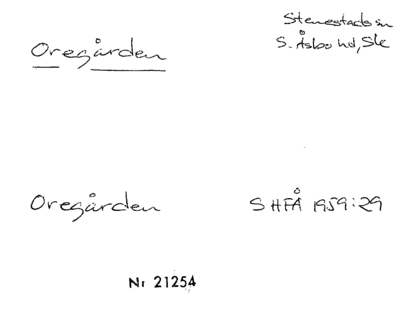 Oregården
Stenestads sn
S. Åsbo hd, Sk
Oregården
SHFÅ 1959:29
Nr 21254